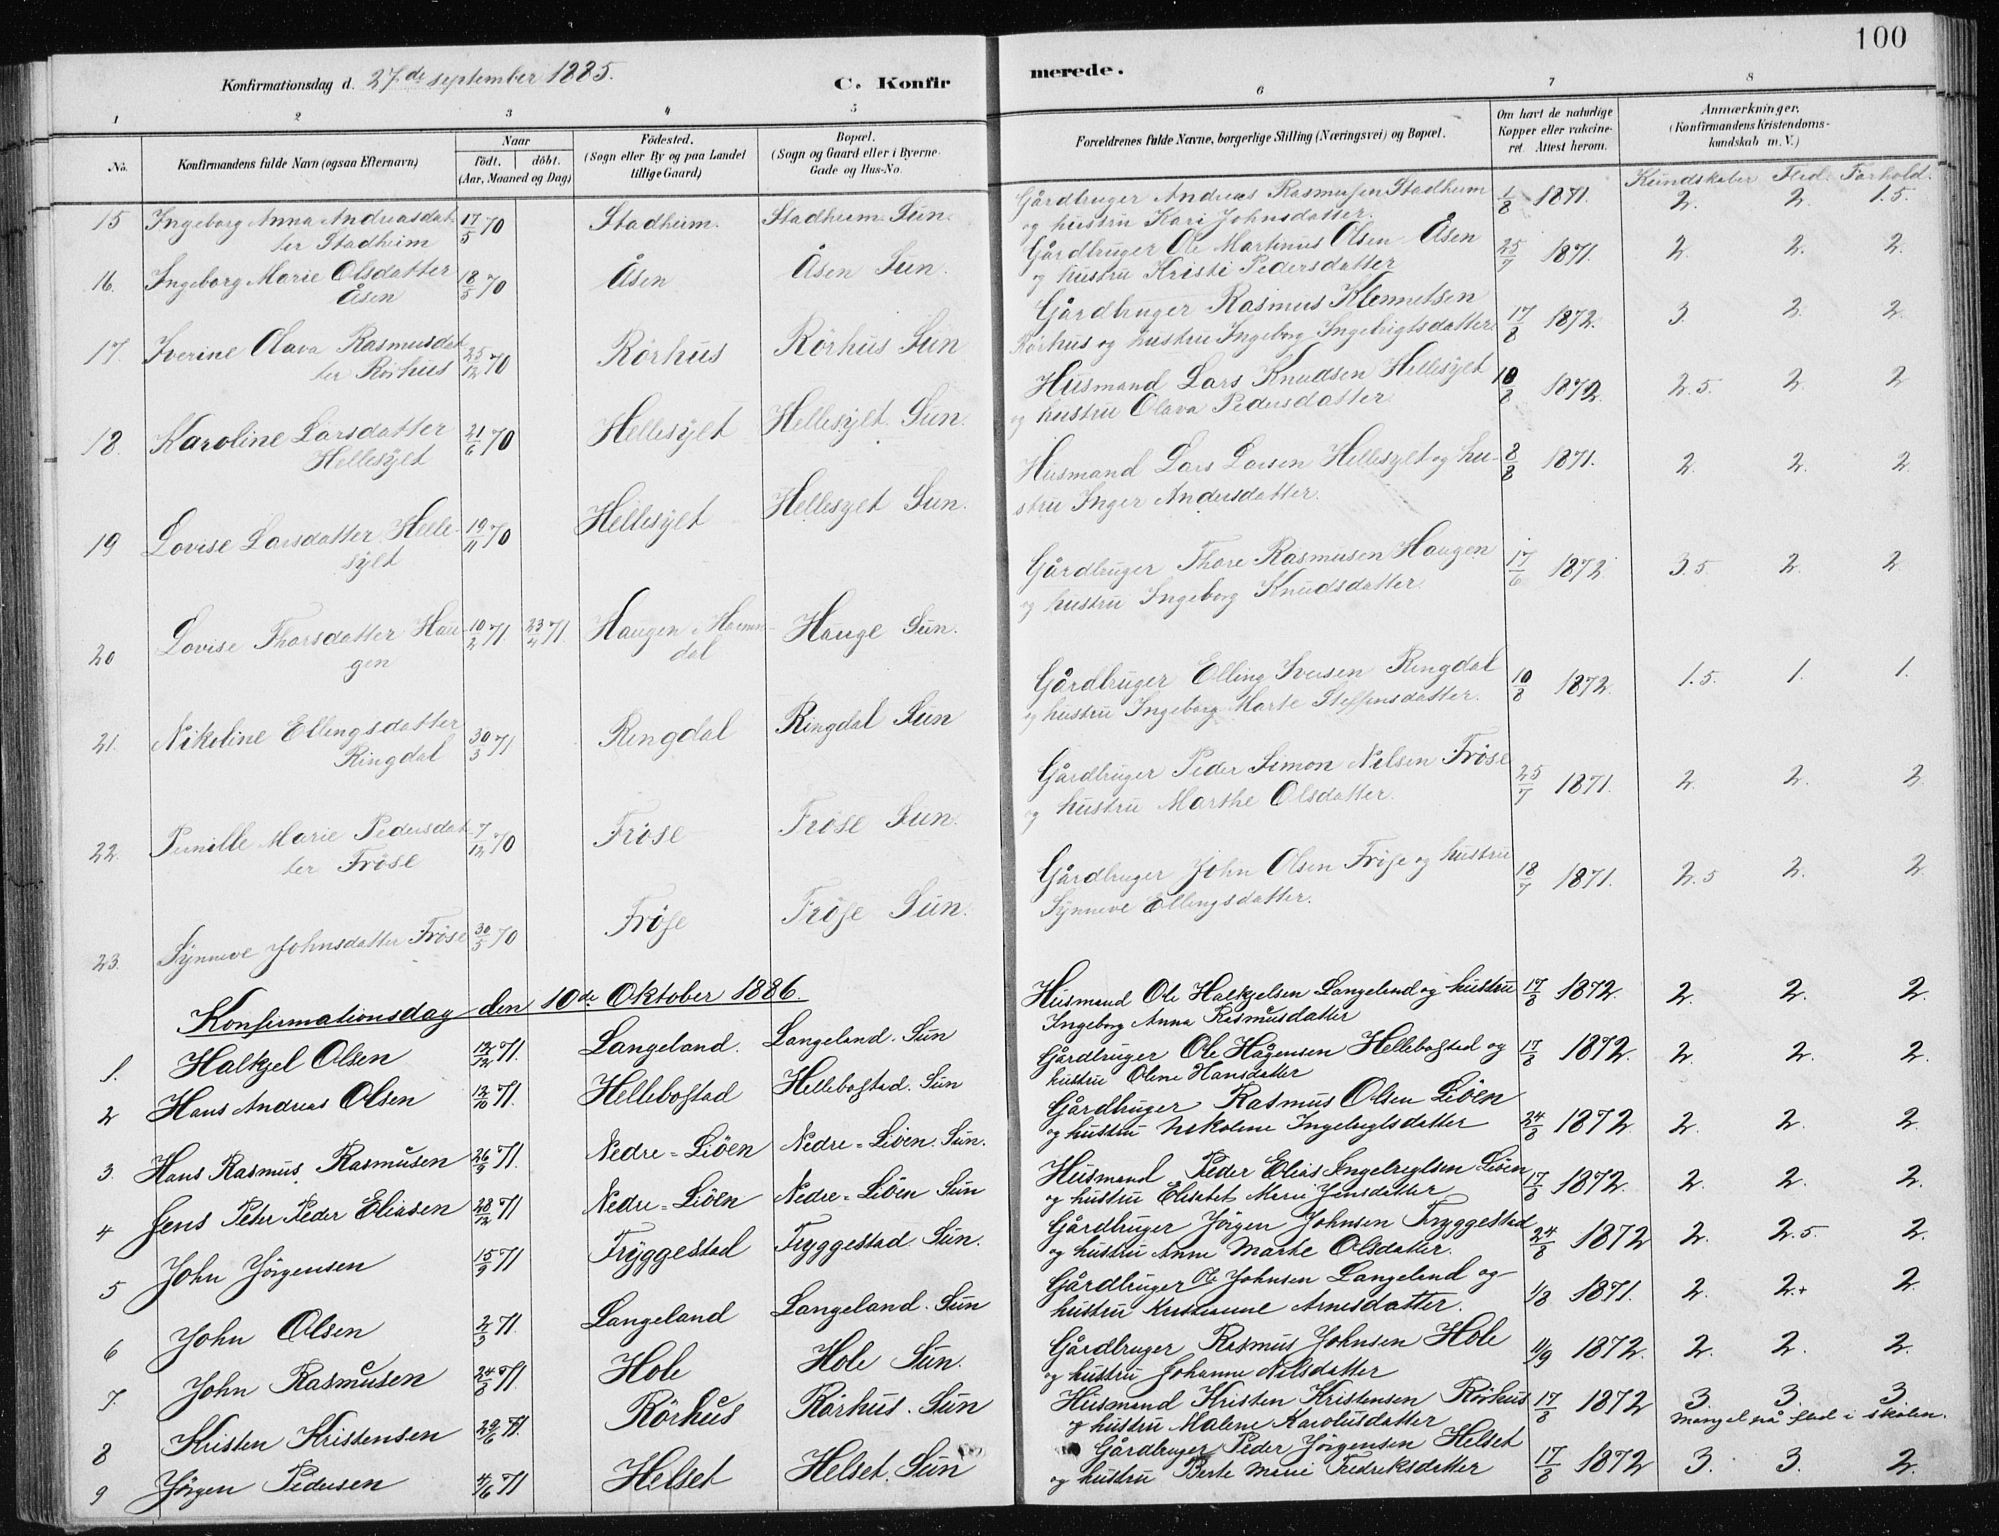 100
Konfirmationsdag d. 27de september 1885.
C. Konfirmerede.
1 2 3 4 5 6 7 8
No.
Konfirmandens fulde Navn (ogsaa Efternavn)
Naar
födt. döbt.
(Aar, Maaned og Dag)
Födested.
(Sogn eller By og paa Landet
tillige Gaard)
Bopæl.
(Sogn og Gaard eller i Byerne
Gade og Hus-No.
Forældrenes fulde Navne, borgerlige Stilling (Næringsvei) og Bopæl.
Om havt de naturlige
Kopper eller vakcine-
ret. Attest herom.
Anmærkninger.
(Konfirmandens Kristendoms-
kundskab m. V.)
Kundskaber Flid. Forhold.
15 Ingeborg Anna Andreasdat- 17/5 70 Stadheim. Stadheim. Sun. Gårdbruger Andreas Rasmusen Stadheim 1/8 1871. 2. 2. 1.5.
ter Stadheim og hustru Kari Johnsdatter.
16. Ingeborg Marie Olsdatter 18/5 70 Åsen Åsen Sun. Gårdbruger Ole Martinus Olsen Åsen 25/7 1871. 2 2. 2.
Åsen og hustru Kristi Pedersdatter
17. Iverine Olava Rasmusdat 25/12 70 Rörhus Rörhus Sun Gårdbruger Rasmus Klemetsen 17/8 1872. 3. 2. 2.
ter Rörhus Rörhus og hustru Ingeborg Ingebrigtsdatter
18. Karoline Larsdatter 21/6 70 Hellesylt Hellesylt. Sun. Husmand Lars Knudsen Hellesylt 10/8 1872. 2.5 2. 2
Hellesylt og hustru Olava Pedersdatter.
19 Lovise Larsdatter Helle- 19/11 70 Hellesylt Hellesylt Sun. Husmand Lars Larsen Hellesylt og hu- 8/8 1871. 2. 2. 2.
sylt stru Inger Andersdatter.
20 Lovise Thorsdatter Hau 10/2 71. 23/4 71. Haugen i Hornin- Hauge Sun. Gårdbruger Thore Rasmusen Haugen 17/6 1872 3.5 2. 2
gen dal og hustru Ingeborg Knudsdatter.
21. Nikoline Ellingsdatter 30/3 71 Ringdal Ringdal Sun Gårdbruger Elling Iversen Ringdal 10/8 1872. 1.5. 1. 1.
Ringdal og hustru Ingeborg Marte Steffensdatter.
22. Pernille Marie Pedersdat 7/12 70 Fröse Fröse Sun. Gårdbruger Peder Simon Nilsen Fröse 25/7 1871. 2. 2. 2.
ter Fröse og hustru Marthe Olsdatter.
23. Synneve Johnsdatter Fröse 30/5 70 Fröse Fröse Sun. Gårdbruger John Olsen Fröse og hustru 18/7 1871. 2.5 2. 2
Synneve Ellingsdatter.
Konfirmationsdag den 10de Oktober 1886.
1. Halkjel Olsen 12/12 71. Langeland. Langeland. Sun Husmand Ole Halkjelsen Langeland og hustru 17/8 1872. 2. 2. 2.
Ingeborg Anna Rasmusdatter
2 Hans Andreas Olsen 12/10 71. Hellebostad Hellebostad. Sun Gårdbruger Ole Hågensen Hellebostad og 17/8 1872. 2. 2. 2.
hustru Oline Hansdatter
3. Hans Rasmus Rasmusen 26/9 71. Nedre-Liöen Nedre-Liöen. Sun. Gårdbruger Rasmus Olsen Liöen 24/8 1872. 2. 2. 2.
og hustru Nikoline Ingebrigtsdatter
4 Jens Peter Peder Eliasen 28/12 71 Nedre-Liöen Nedre-Liöen Sun Husmand Peder Elias Ingebrigtsen Liöen 17/8 1872. 2. 2. 2.
og hustru Elisabet Marie Jensdatter
5 John Jörgensen 15/9 71 Tryggestad Tryggestad. Sun. Gårdbruger Jörgen Johnsen Tryggestad 24/8 1872 2. 2.5. 2.
og hustru Anne Marte Olsdatter.
6 John Olsen 2/3 71. Langeland Langeland. Sun Gårdbruger Ole Johnsen Langeland og 1/8 1871. 2. 2. 2.
hustru Arnesdatter.
7. John Rasmusen 24/8 71. Hole Hole Sun. Gårdbruger Rasmus Johnsen Hole 11/9 1872. 2. 2. 2.
og hustru Johanne Nilsdatter
8 Kristen Kristensen 29/6 71. Rörhus Rörhus. Sun Husmand Kristen Kristensen Rörhus 17/8 1872 3. 3. 3
og hustru Malene Karolusdatter Mangel på flid i skolen.
9 Jörgen Pedersen 4/6 71 Helset Helset. Sun Gårdbruger Peder Jörgensen Helset 17/8 1872 3. 3. 2.
og hustru Berte Marie Fredriksdatter